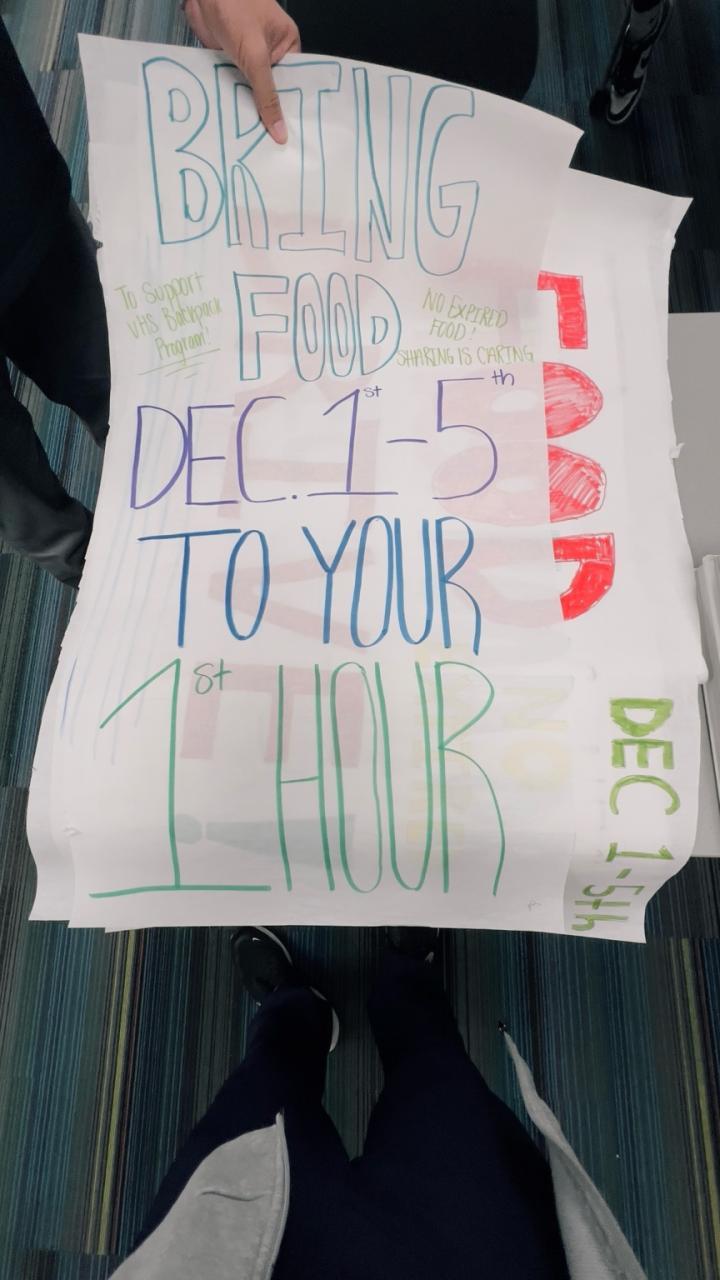 BRING
FOOD
To Support
VHS Backpack
Program!
NO EXPIRED
FOOD!
SHARING IS CARING
DEC. 1st-5th
TO YOUR
1st HOUR
FOOD
DEC 1-5th